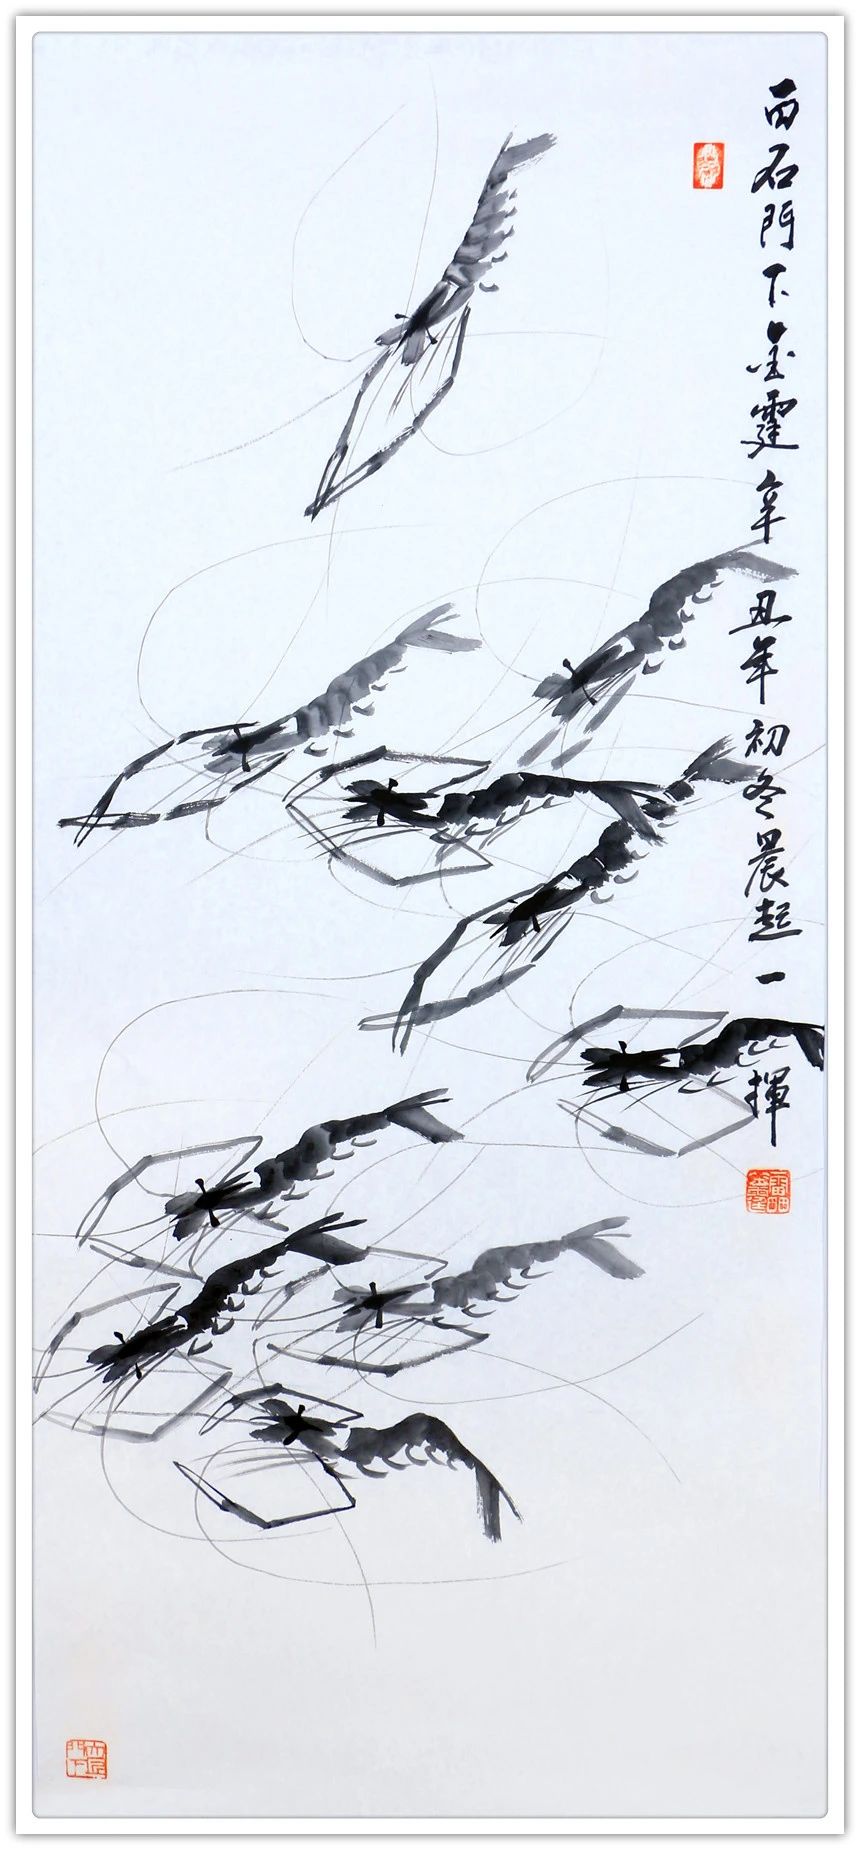 白石門下金霆辛丑年初冬晨起一揮